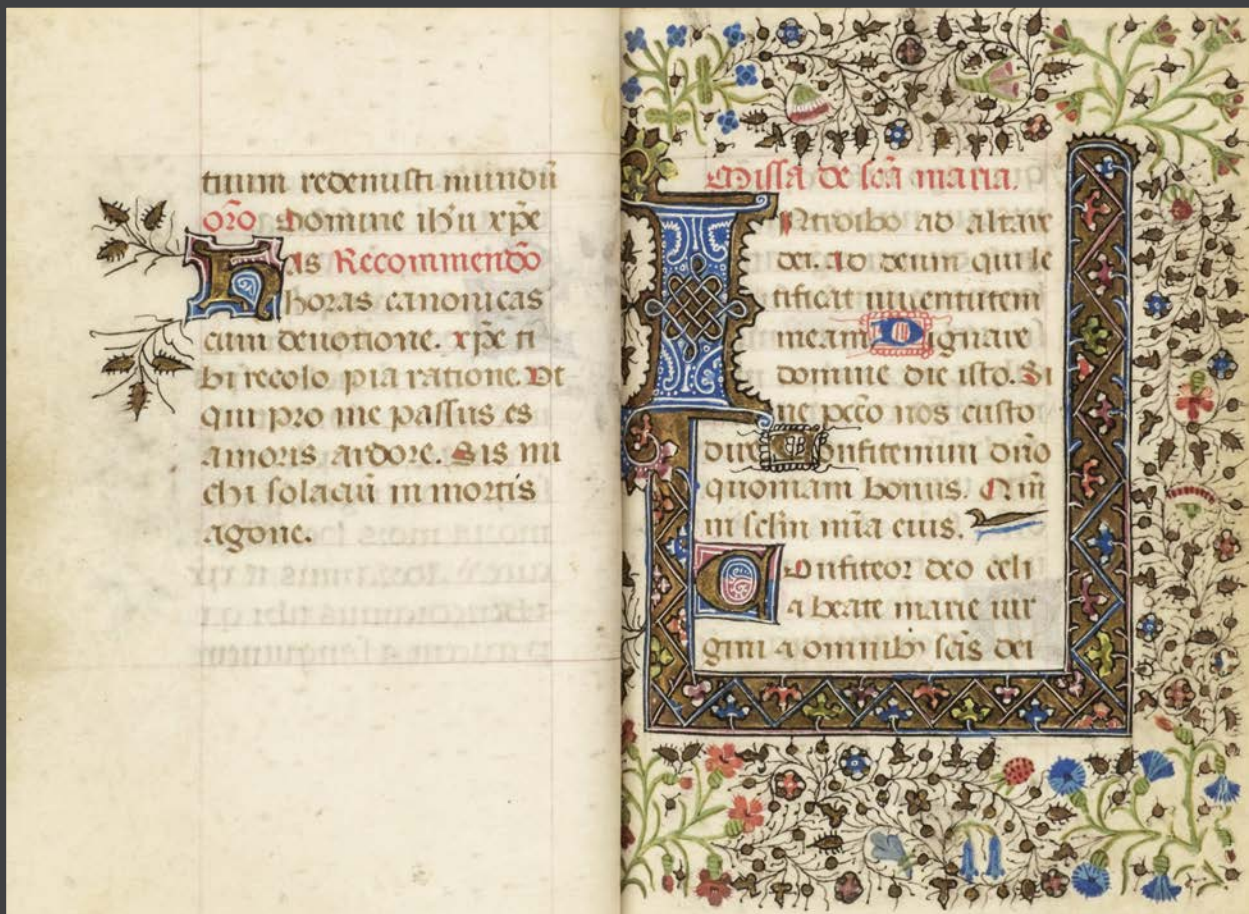 tuum redemisti mundū
or̄o Domine ih'u xp̄e
has Recommendō
horas canonicas
cum deuotione. xp̄e ti
bi recolo pia ratione. Vt
qui pro me passus es
amoris ardore. Sis mi
chi solaciū in mortis
agone.
Missa de sc̄a maria.
INtroibo ad altare
dei. ad deum qui le
tificat iuuentutem
meam Dignare
domine die isto. Si
ne pecc̄o nos custo
dire Confitemini dn̄o
quoniam bonus. Qm̄
in sclm̄ mīa eius.
Confiteor deo celi
a beate marie uir
gini a omnib3 sc̄is dei